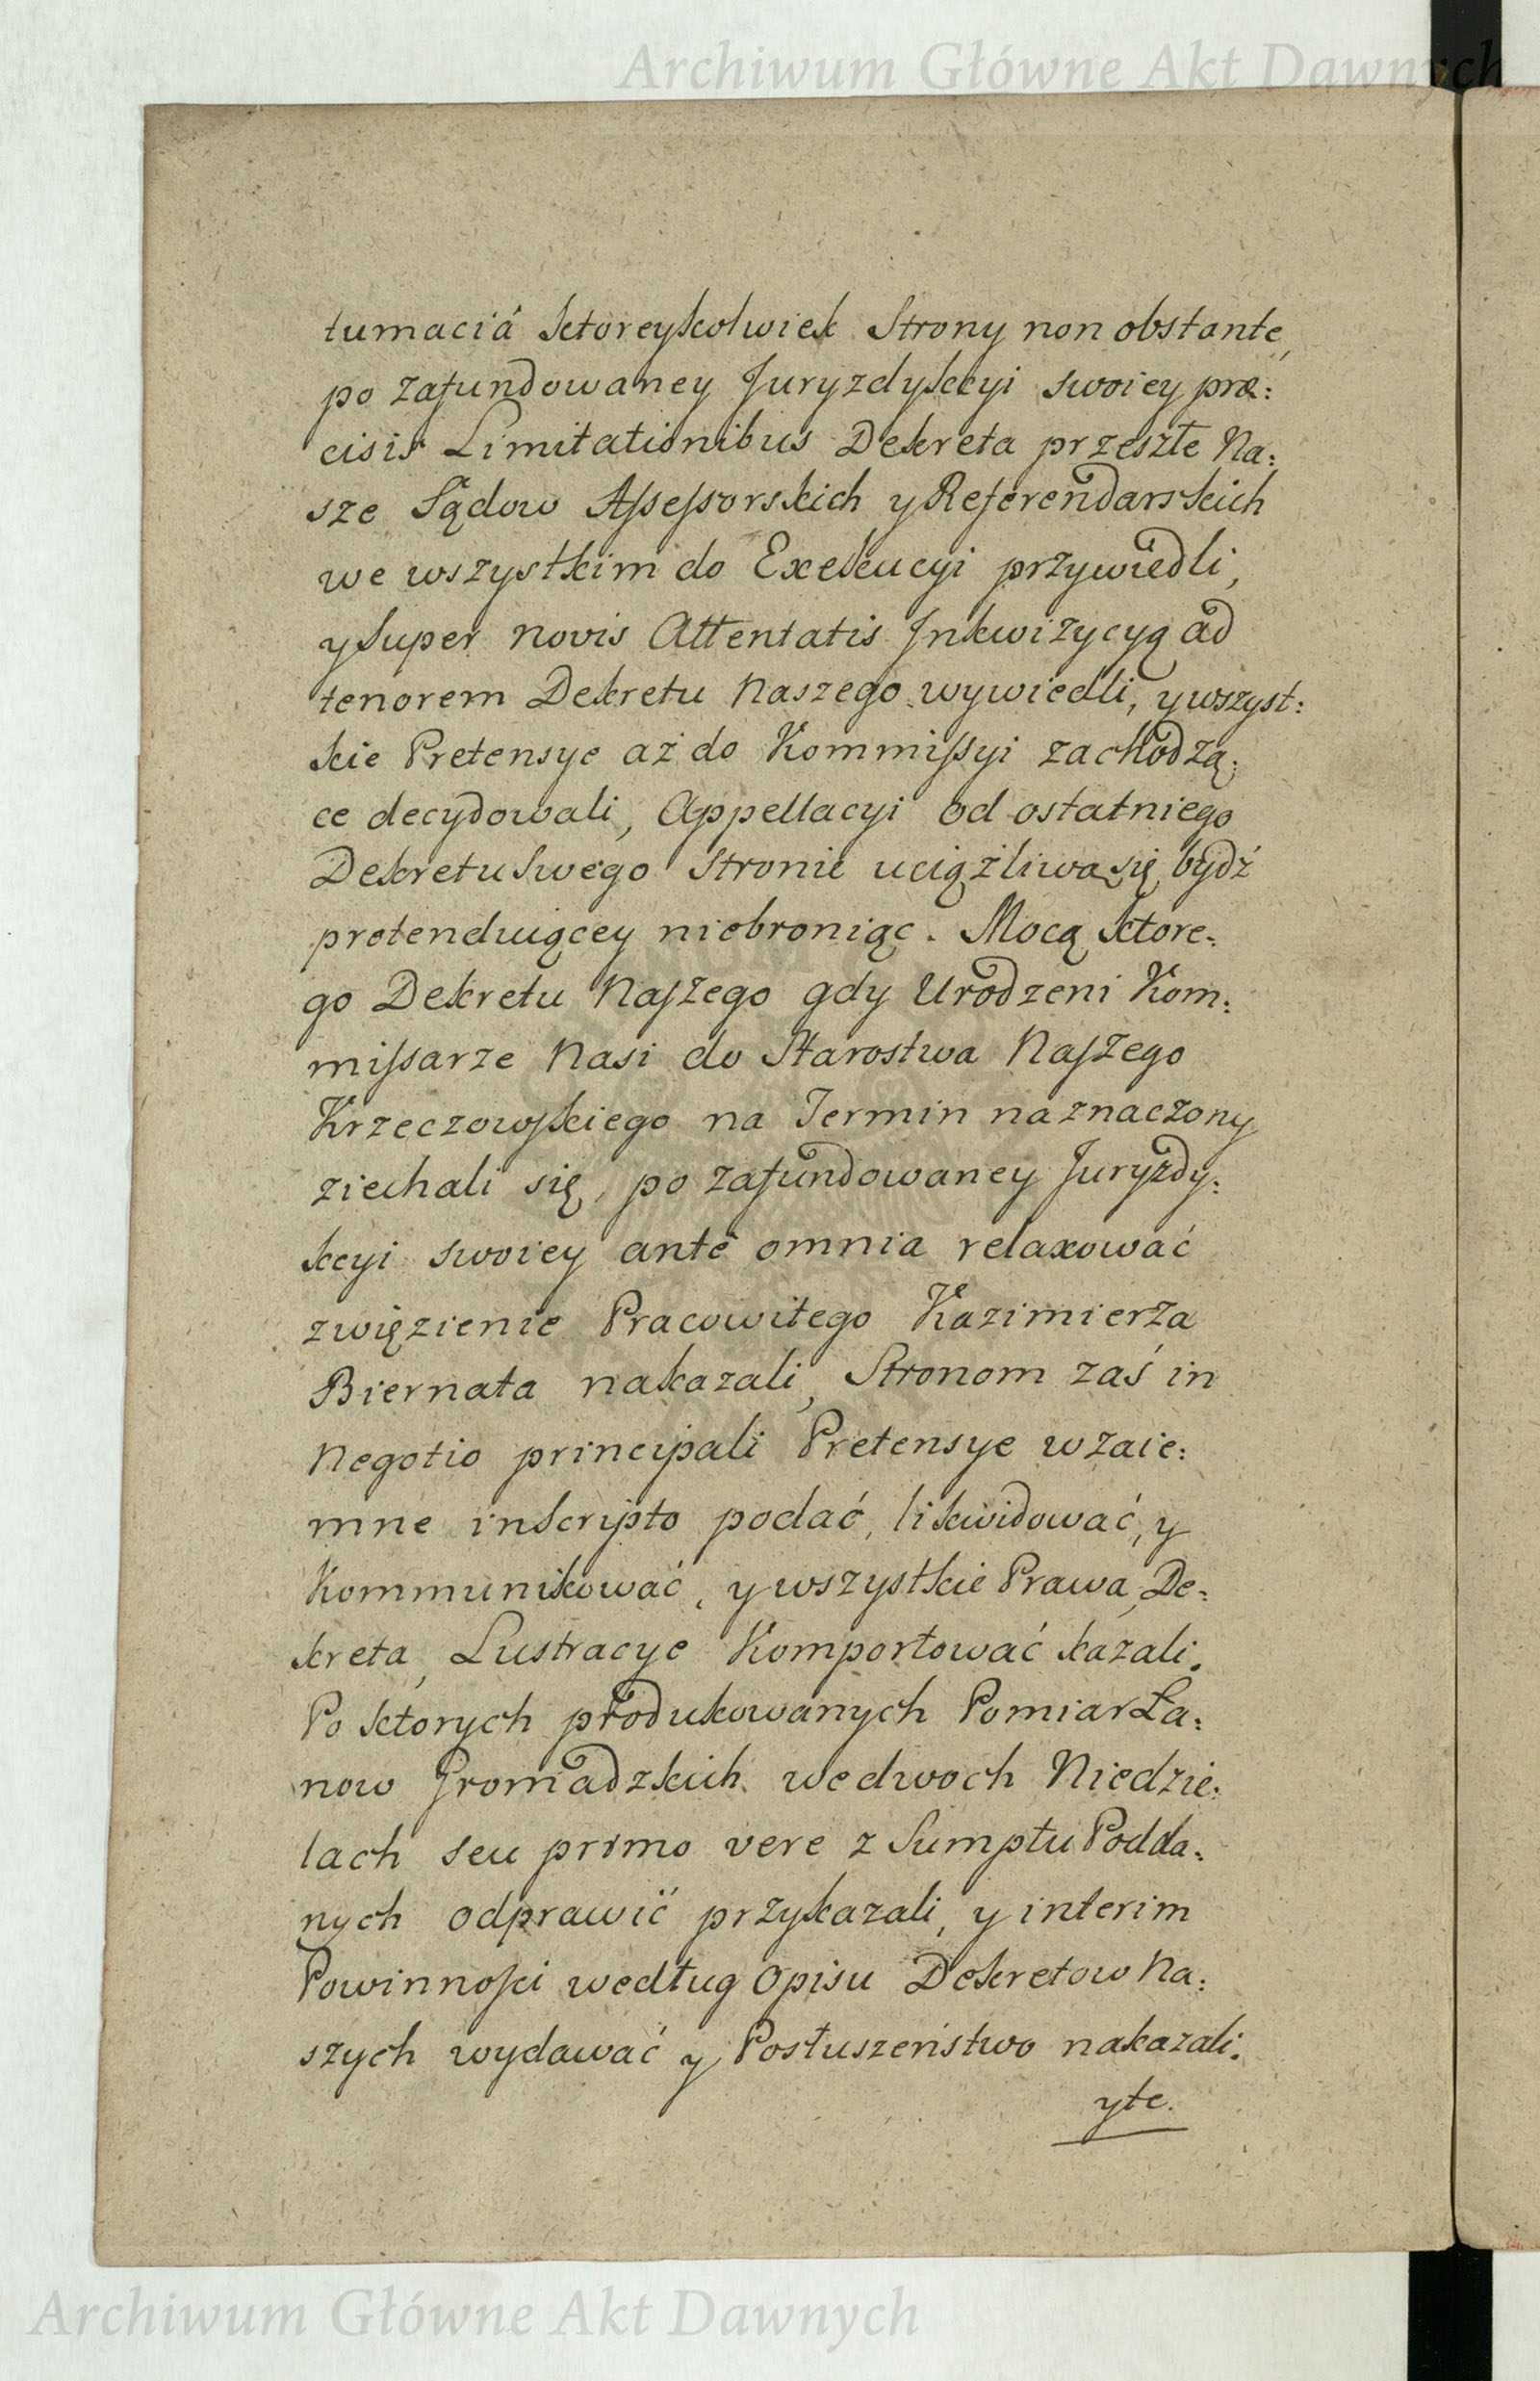 Archiwum Główne Akt Dawnych
tumaciá ktoreykolwiek Strony non obstante,
po zafundowaney Juryzdykcyi swoiey præ:
cisis Limitationibus Dekreta przeszłe Na:
sze Sądow Assessorskich y Referendarskich
we wszystkim do Exekucyi przywiedli,
y Super novis Attentatis Inkwizycyą ad
tenorem Dekretu Naszego wywiedli, y wszyst:
kie Pretensye aż do Kommissyi zachodzą:
ce decydowali, Appellacyi od ostatniego
Dekretu Swego Stronie uciążliwą się bydź
pretenduiącey niebroniąc. Mocą ktore:
go Dekretu Naszego gdy Urodzeni Kom:
missarze Nasi do Starostwa Naszego
Krzeczowskiego na Termin naznaczony
ziechali się, po zafundowaney Juryzdy:
kcyi swoiey ante omnia relaxować
zwięzienie Pracowitego Kazimierza
Biernata nakazali, Stronom zaś in
Negotio principali Pretensye wzaie:
mne inscripto podać, likwidować, y
Kommunikować, y wszystkie Prawa, De:
kreta, Lustracye Komportować kazali.
Po ktorych produkowanych Pomiar Ła:
now Gromadzkich wedwoch Niedzie:
lach seu primo vere z Sumptu Podda:
nych odprawić przykazali, y interim
Powinności według Opisu Dekretow Na:
szych wydawać y Posłuszeństwo nakazali.
yte.
Archiwum Główne Akt Dawnych